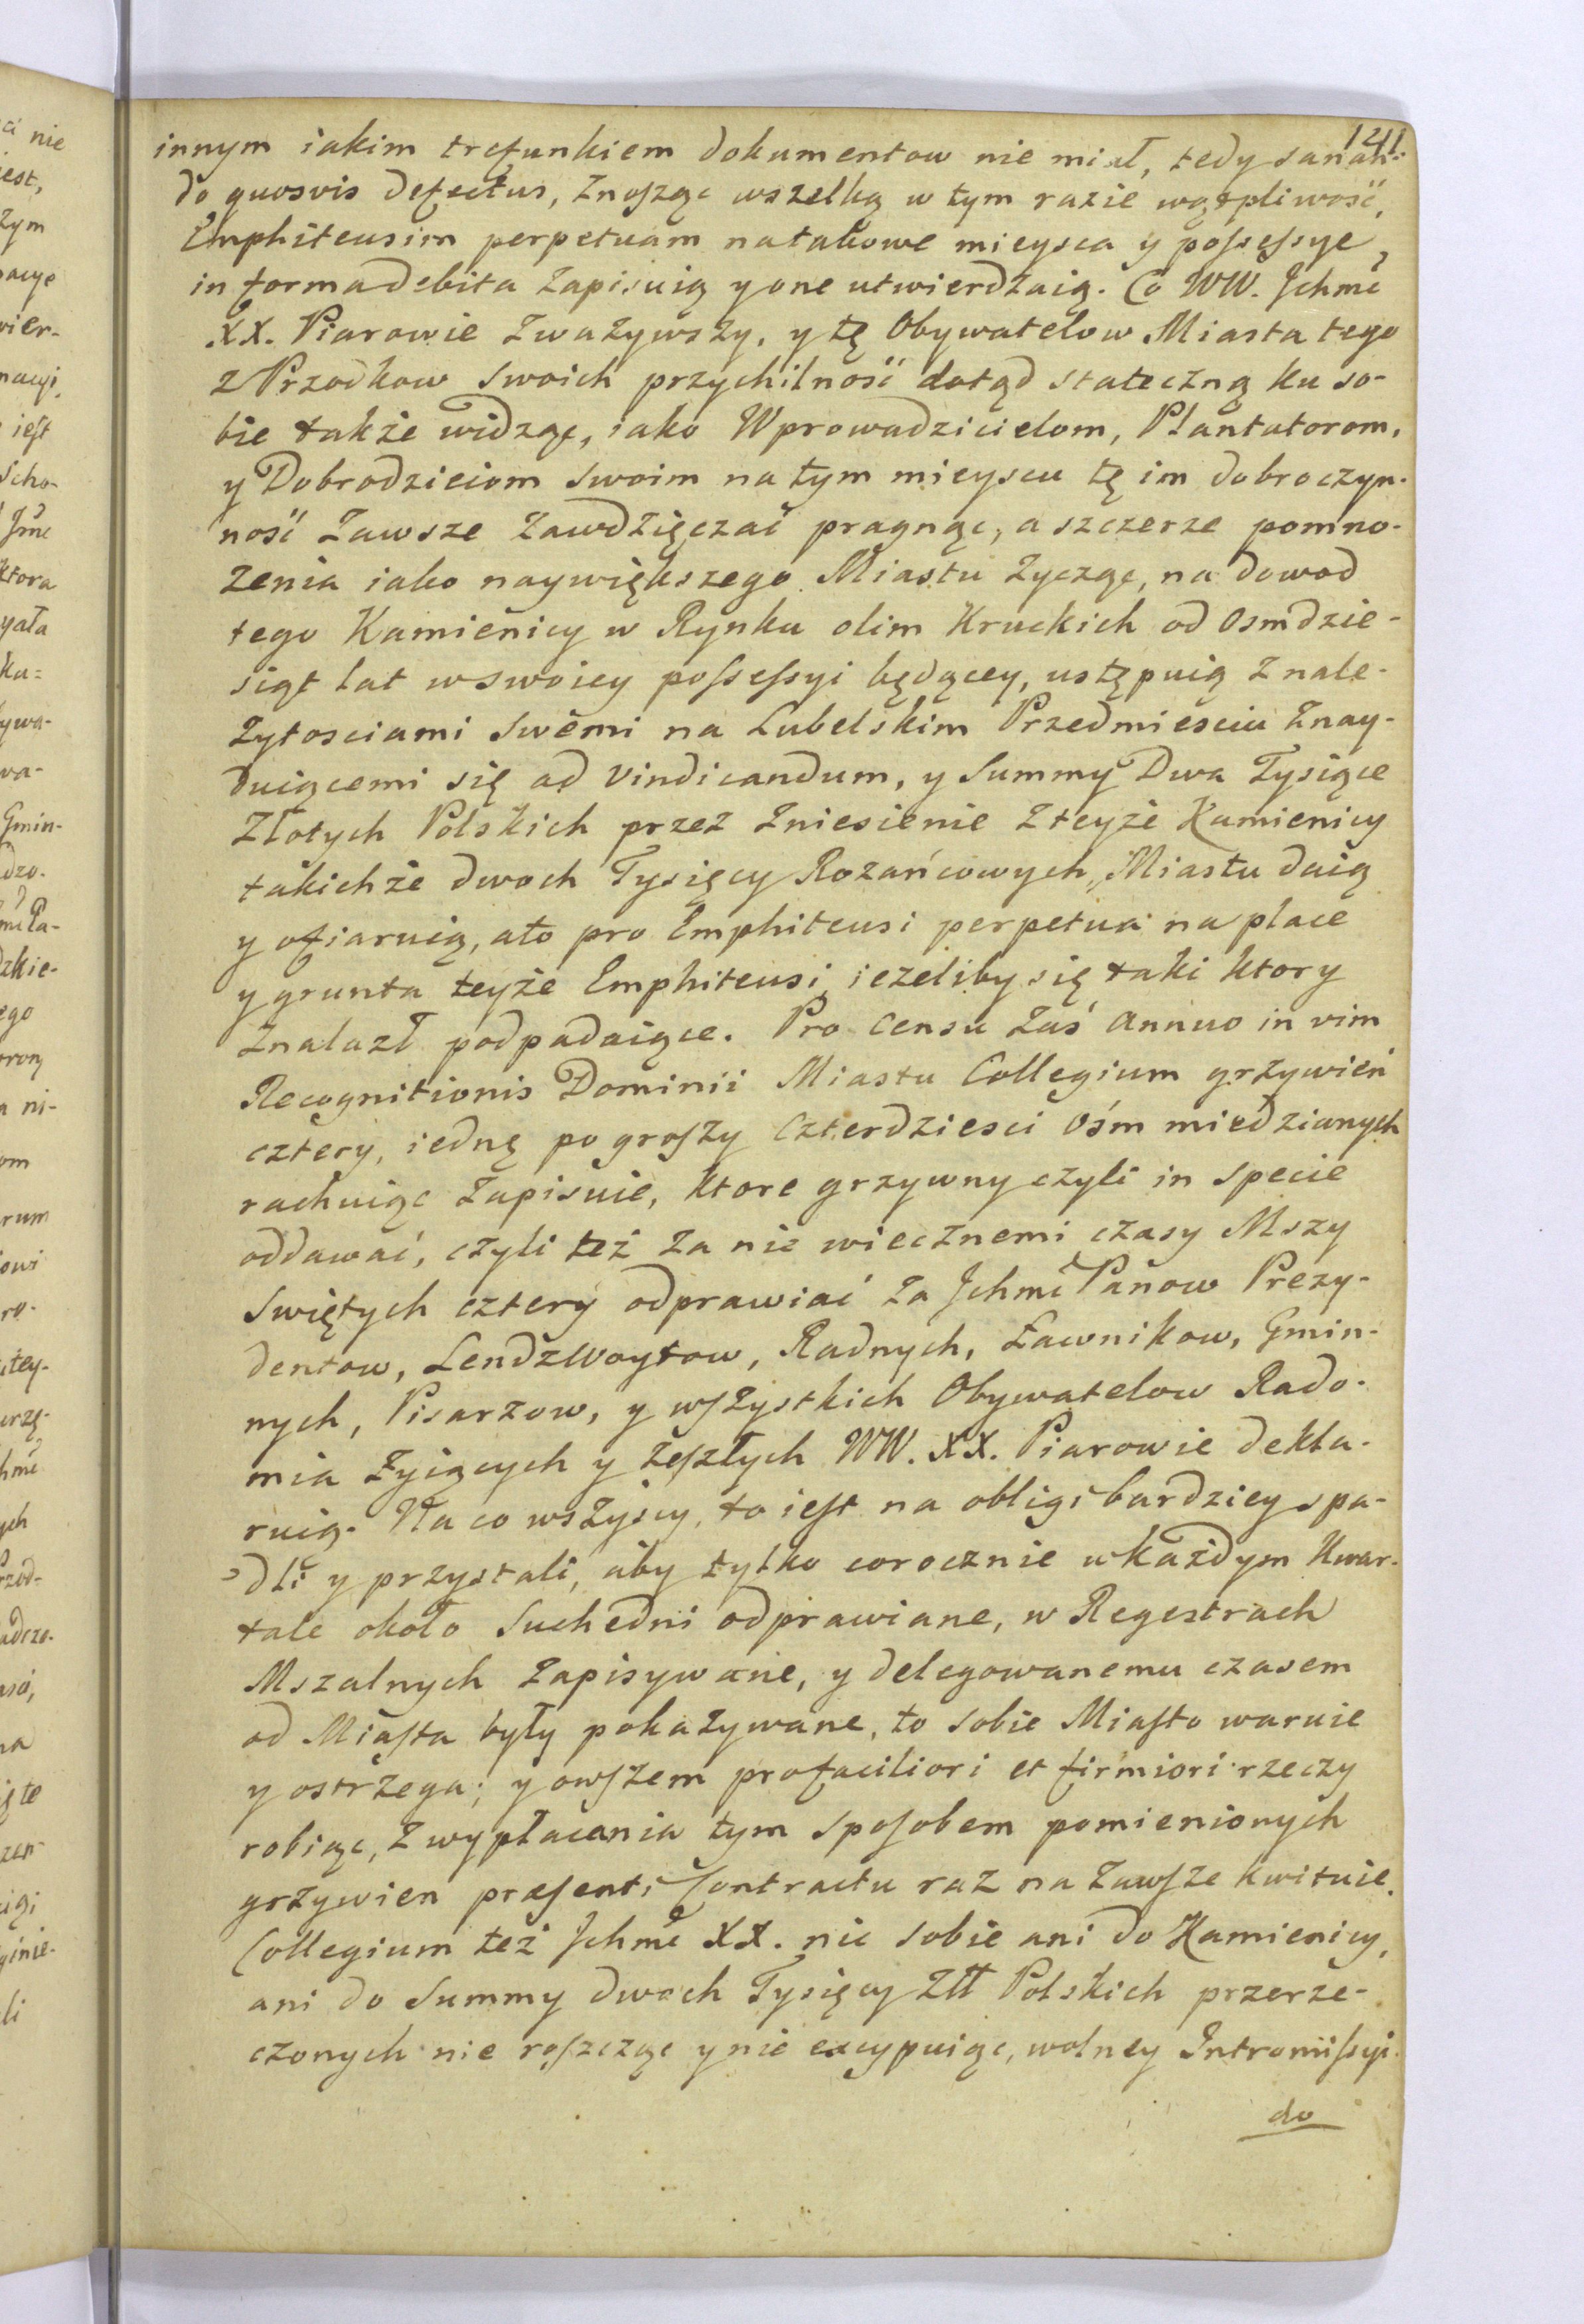 1211.
innym iakim trefunkiem dokumentow nie miał, tedy sanan-
do quosvis defectus, znosząc wszelką w tym razie wątpliwość,
Emphiteusim perpetuam natakowe mieysca y possessye,
in forma debita zapisuią y one utwierdzaią. Co WW. Jchmć
XX. Piarowie zważywszy, y tę Obywatelow Miasta tego
z Przodkow swoich przychilność dotąd stateczną ku so-
bie także widząc, iako Wprowadzicielom, Plantatorom,
y Dobrodzieiom swoim na tym mieyscu tę im dobroczyn-
ność zawsze zawdzięczać pragnąc, a szczerze pomno-
żenia iako naywiększego Miastu życząc, na dowod
tego Kamienicy w Rynku olim Kruckich od osmdzie-
siąt lat w swoiey possessyi będącey, ustępuią z nale-
żytosciami swemi na Lubelskim Przedmiesciu znay-
duiącemi się ad vindicandum, y Summy Dwa Tysiące
Złotych Polskich przez zniesienie z teyże Kamienicy
takichże dwoch Tysięcy Rozańcowych, Miastu daią
y ofiaruią, ato pro Emphiteusi perpetua na place
y grunta teyże Emphiteusi iezeliby się taki ktory
znalazł podpadaiące. Pro Censu zaś annuo in vim
Recognitionis Dominii Miastu Collegium grzywień
cztery, iednę po groszy czterdziesci ośm miedzianych
rachuiąc zapisuie, ktore grzywny czyli in specie
oddawać, czyli też za nie wiecznemi czasy Mszy
Swiętych cztery odprawiać za Jchmć Panow Prezy-
dentow, Lendzwoytow, Radnych, Ławnikow, Gmin-
nych, Pisarzow, y wszystkich Obywatelow Rado-
mia żyiących y zeszłych WW. XX. Piarowie dekla-
ruią. Na co wszyscy, to iest na obligi bardziey spa-
dli y przystali, aby tylko corocznie w każdym Kwar-
tale około Suchedni odprawiane, w Regestrach
Mszalnych zapisywane, y delegowanemu czasem
od Miasta były pokazywane, to sobie Miasto waruie
y ostrzega; y owszem pro faciliori et firmiori rzeczy
robiąc, z wypłacania tym sposobem pomienionych
grzywien præsenti Contractu raz na zawsze kwituie.
Collegium też Jchmć XX. nic sobie ani do Kamienicy,
ani do Summy dwoch Tysięcy Złł Polskich przerze-
czonych nie roszcząc y nie excypuiąc, wolney Intromissyi
do